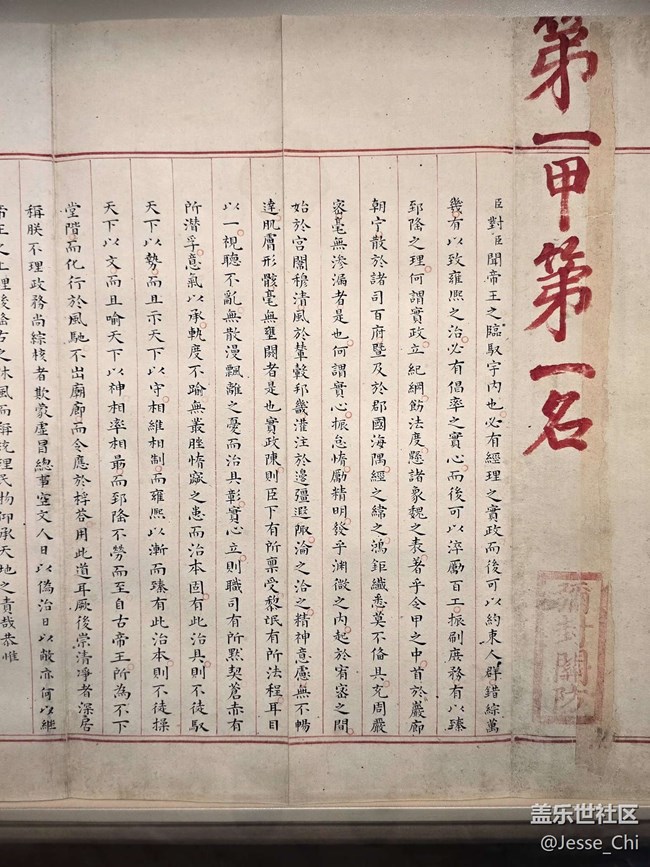 第一甲第一名
彌封關防
臣對臣聞帝王之臨馭宇內也必有經理之實政而後可以約束人群錯綜萬
幾有以致雍熙之治必有倡率之實心而後可以淬勵百工振刷庶務有以臻
郅隆之理何謂實政立紀綱飭法度懸諸象魏之表著乎令甲之中首於巖廊
朝宁散於諸司百府暨及於郡國海隅經之緯之鴻鉅纖悉莫不備具充周嚴
密毫無滲漏者是也何謂實心振怠惰勵精明發乎淵微之內起於宥密之間
始於宮闈穆清風於輦轂邦畿灌注於邊疆遐陬淪之洽之精神意慮無不暢
達肌膚形骸毫無壅閼者是也實政陳則臣下有所稟受黎氓有所法程耳目
以一視聽不亂無散漫飄離之憂而治具彰實心立則職司有所默契蒼赤有
所潛孚意氣以承軌度不踰無叢脞惰窳之患而治本固有此治具則不徒馭
天下以勢而且示天下以守相維相制而雍熙以漸而臻有此治本則不徒操
天下以文而且喻天下以神相率相勗而郅隆不勞而至自古帝王所為不下
堂階而化行於風馳不出廟廊而令應於桴答用此道耳厥後崇清凈者深居
稱朕不理政務尚綜核者欺蒙虛冒總事空文人日以偽治日以敝亦何以繼
帝王之上理後隆古之休風而稱統理民物仰承天地之責哉恭惟
盖乐世社区
@Jesse_Chi